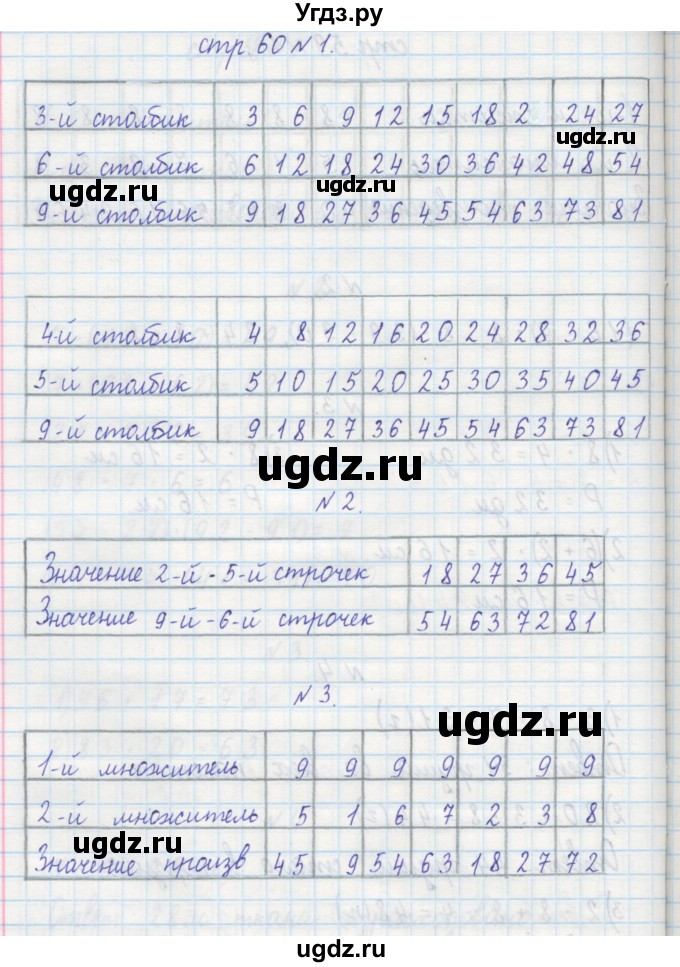 Угдз.ру
стр. 60 №1.
3-й столбик 3 6 9 12 15 18 2 24 27
ugdz.ru
6-й столбик 6 12 18 24 30 36 42 48 54
ugdz.ru ugdz.ru
9-й столбик 9 18 27 36 45 54 63 73 81
4-й столбик 4 8 12 16 20 24 28 32 36
5-й столбик 5 10 15 20 25 30 35 40 45
9-й столбик 9 18 27 36 45 54 63 73 81
ugdz.ru
№2.
Значение 2-й - 5-й строчек 18 27 36 45
Значение 9-й - 6-й строчек 54 63 72 81
№3.
ugdz.ru
1-й множитель 9 9 9 9 9 9 9
2-й множитель 5 1 6 7 2 3 8
ugdz.ru
Значение произв 45 9 54 63 18 27 72
ugdz.ru